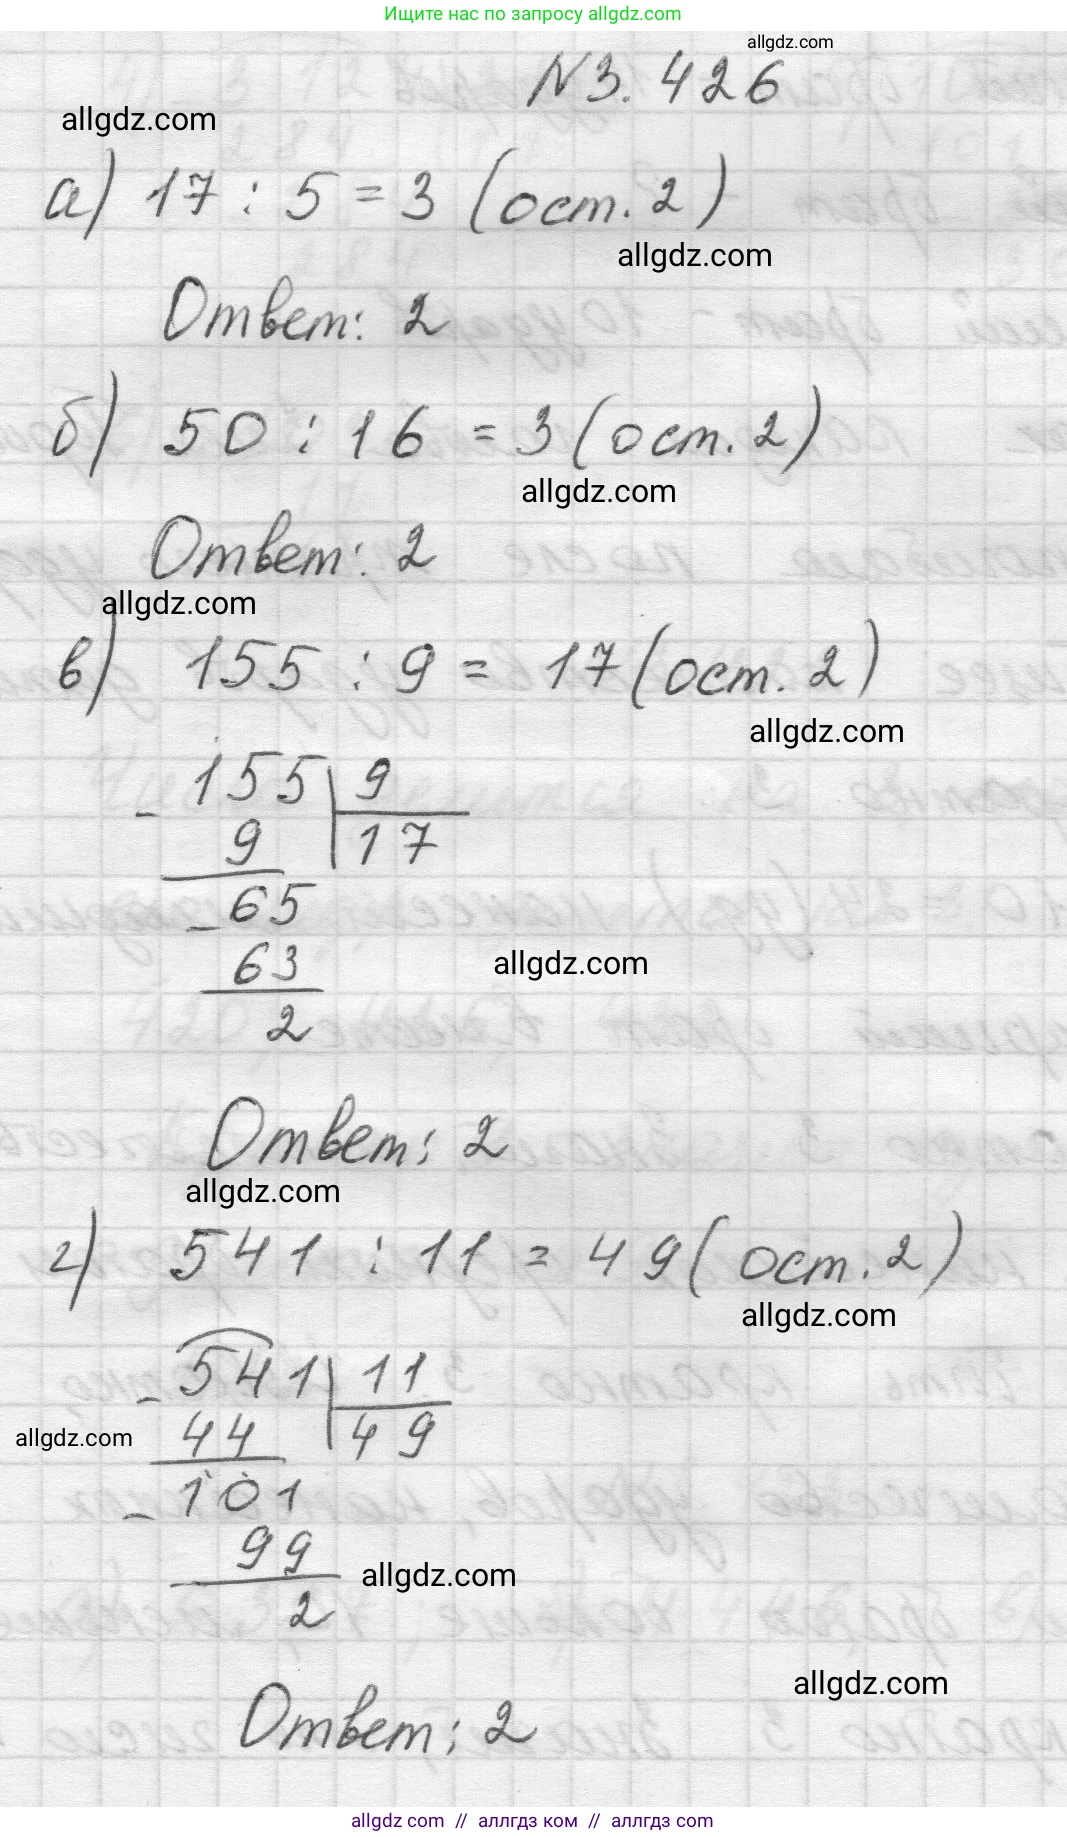 Ищите нас по запросу allgdz.com
allgdz.com
N3.426
allgdz.com
а) 17 : 5 = 3 (ост. 2)
allgdz.com
Ответ: 2
б) 50 : 16 = 3 (ост. 2)
allgdz.com
Ответ: 2
allgdz.com
в) 155 : 9 = 17 (ост. 2)
allgdz.com
155 9
- 9 17
65
- 63
allgdz.com
2
Ответ: 2
allgdz.com
г) 541 : 11 = 49 (ост. 2)
allgdz.com
- 541 11
allgdz.com
44 49
- 101
99
allgdz.com
2
allgdz.com
Ответ: 2
allgdz.com // аллгдз ком // аллгдз.com